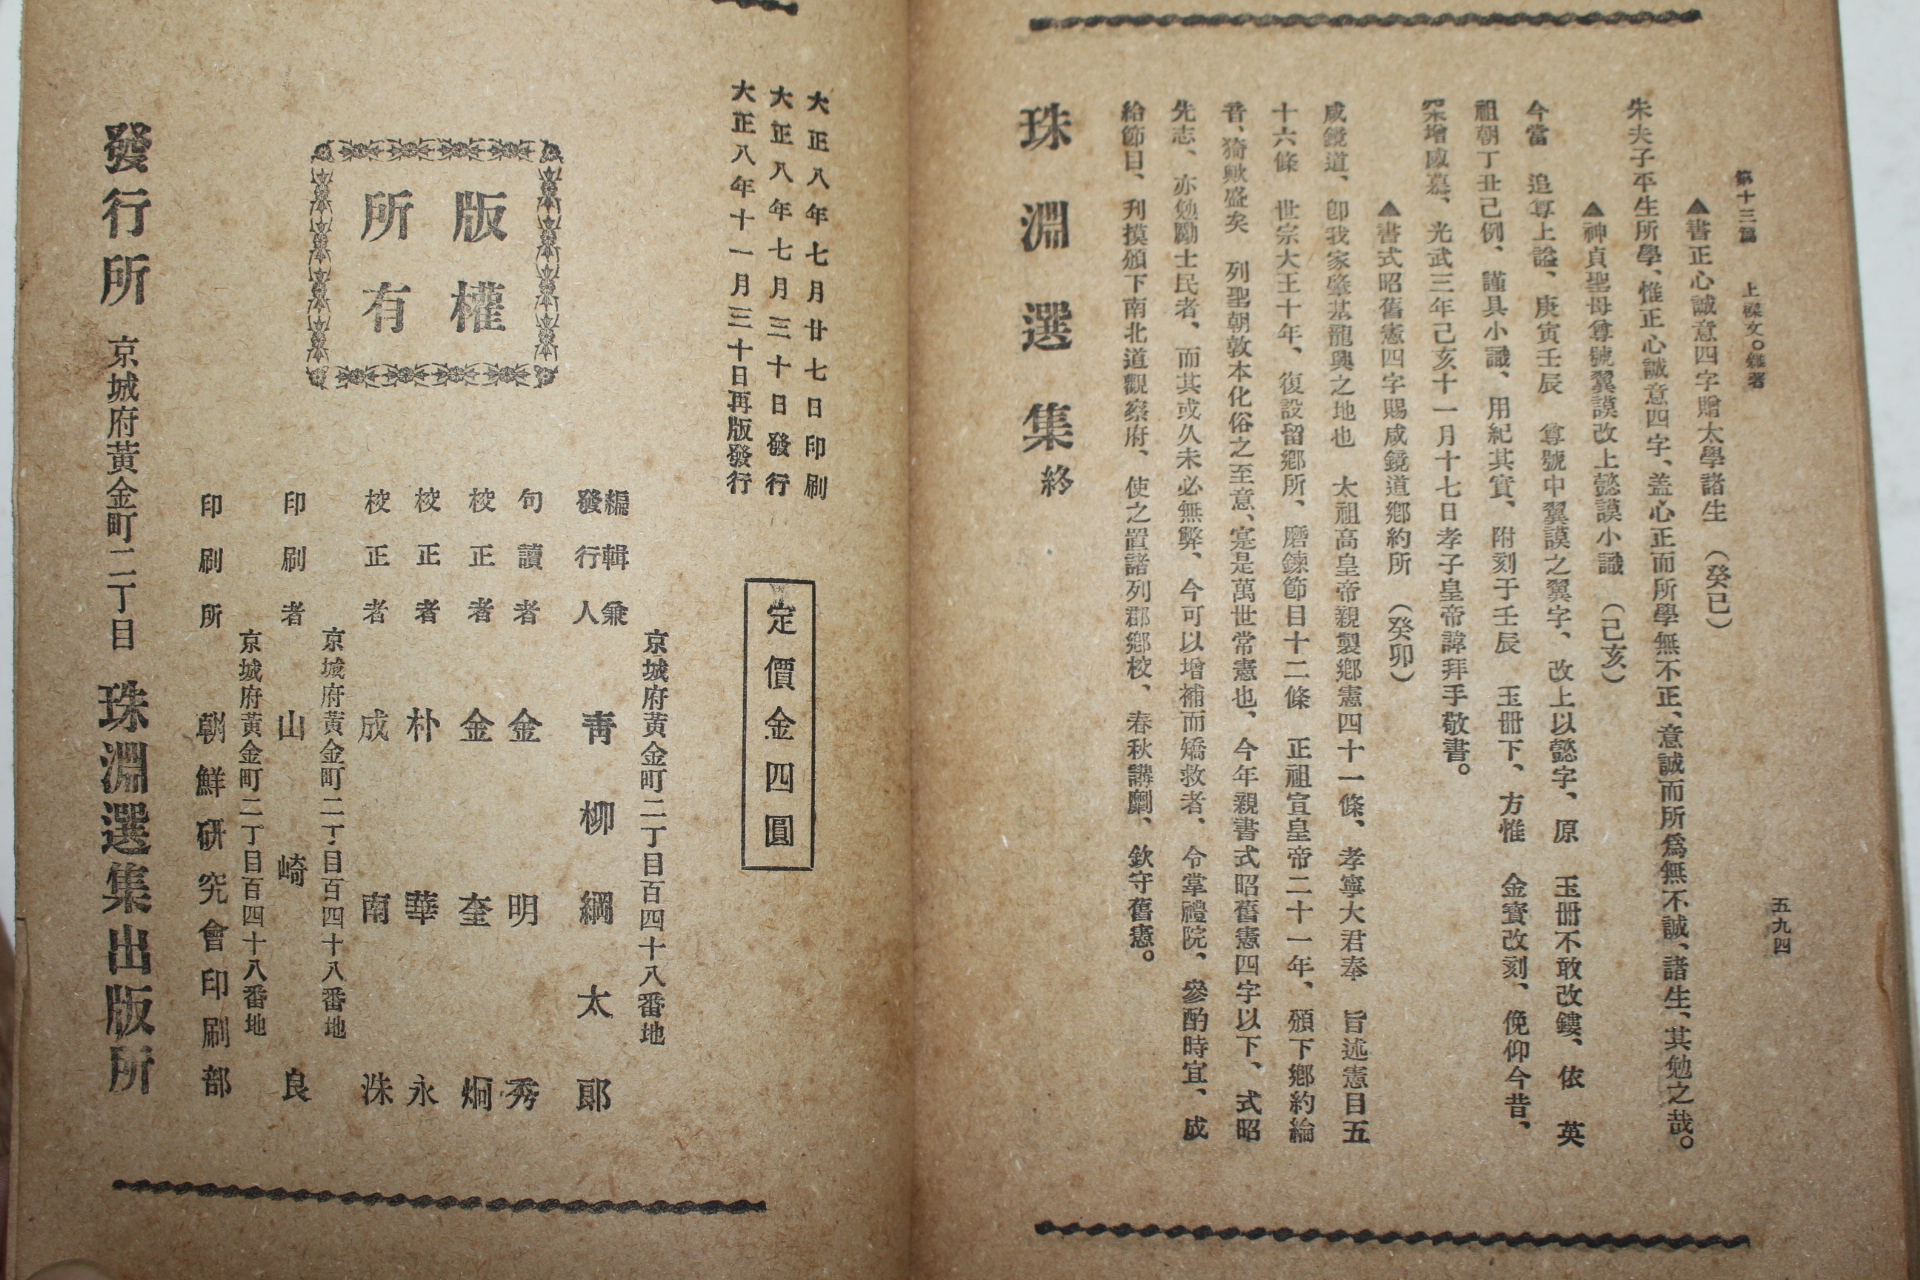 第十三篇 上樑文。雜著 五九四
▲書正心誠意四字贈太學諸生（癸巳）
朱夫子平生所學、惟正心誠意四字、盖心正而所學無不正、意誠而所爲無不誠、諸生、其勉之哉。
▲神貞聖母尊號翼謨改上懿謨小識（己亥）
今當 追尊上謚、庚寅壬辰 尊號中翼謨之翼字、改上以懿字、原 玉册不敢改鏤、依 英
祖朝丁丑己例、謹具小識、用紀其實、附刻于壬辰 玉册下、方惟 金寶改刻、俛仰今昔、
冞增感慕、光武三年己亥十一月十七日孝子皇帝諱拜手敬書。
▲書式昭舊憲四字賜咸鏡道鄉約所（癸卯）
咸鏡道、卽我家肇基龍興之地也 太祖高皇帝親製鄉憲四十一條、孝寧大君奉 旨述憲目五
十六條 世宗大王十年、復設留鄉所、磨鍊節目十二條 正祖宣皇帝二十一年、頒下鄉約綸
音、猗歟盛矣 列聖朝敦本化俗之至意、寔是萬世常憲也、今年親書式昭舊憲四字以下、式昭
先志、亦勉勵士民者、而其或久未必無弊、今可以增補而矯救者、令掌禮院、參酌時宜、成
給節目、刋摸頒下南北道觀察府、使之置諸列郡鄉校、春秋講劘、欽守舊憲。
珠淵選集終
大正八年七月廿七日印刷
大正八年七月三十日發行
大正八年十一月三十日再版發行
定價金四圓
版權
所有
京城府黃金町二丁目百四十八番地
編輯兼
發行人 靑柳綱太郞
句讀者 金明秀
校正者 金奎烱
校正者 朴華永
校正者 成南洙
京城府黃金町二丁目百四十八番地
印刷者 山崎良
京城府黃金町二丁目百四十八番地
印刷所 朝鮮研究會印刷部
發行所 京城府黃金町二丁目 珠淵選集出版所